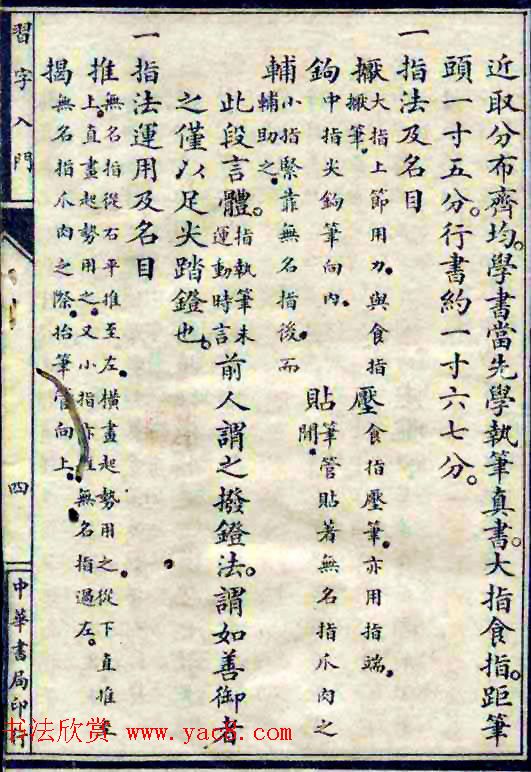 近取分布齊均。學書當先學執筆真書。大指食指。距筆
頭一寸五分。行書約一寸六七分。
一指法及名目
擫大指上節用力。與食指擫筆。 壓食指壓筆。亦用指端。
鉤中指尖鉤筆向內。 貼筆管貼著無名指爪肉之間。
輔小指緊靠無名指後。而輔助之。
此段言體。指執筆未運動時言前人謂之撥鐙法。謂如善御者
之僅以足尖踏鐙也。
一指法運用及名目
推無名指從右平推至左。橫畫起勢用之。從下直推至上。直畫起勢用之。又小指亦 無名指過左。
揭無名指爪肉之際。抬筆管向上。
習字入門
四
中華書局印行
书法欣赏 www.yac8.com